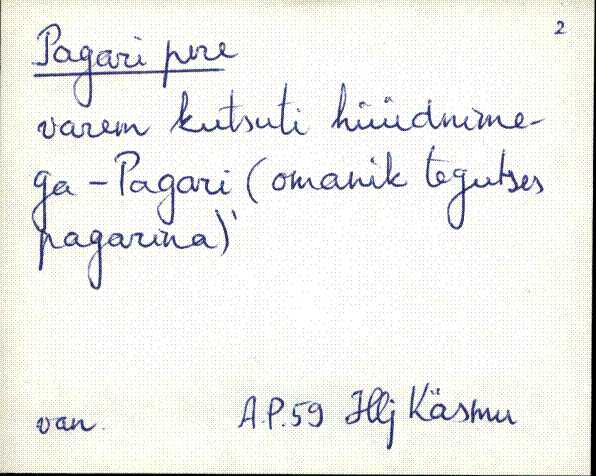 2
Pagari pere
varem kutsuti hüüdnime-
ga - Pagari (omanik tegutses
pagarina)
van. A.P.59 Hlj Käsmu